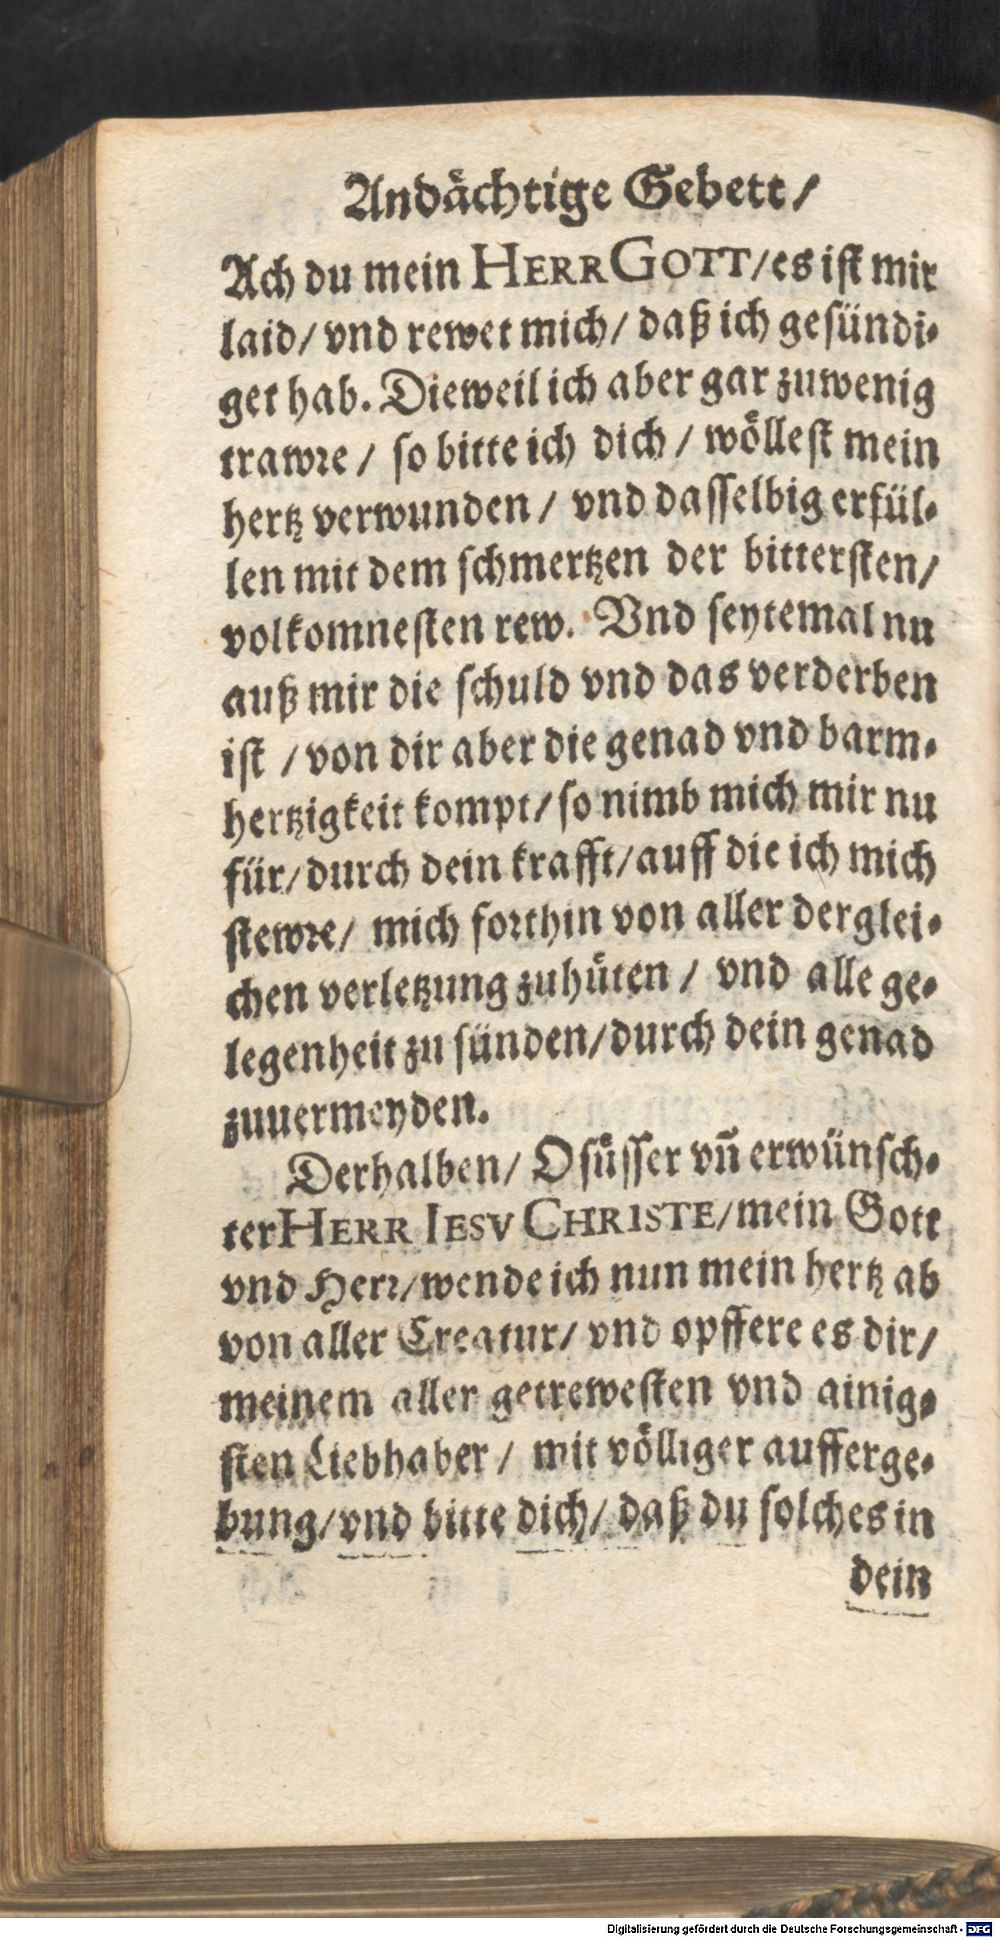 Andächtige Gebett/
Ach du mein HERR GOTT/es ist mir
laid/ vnd rewet mich/ daß ich gesündi-
get hab. Dieweil ich aber gar zuwenig
trawre / so bitte ich dich / wöllest mein
hertz verwunden / vnd dasselbig erfül-
len mit dem schmertzen der bittersten/
volkomnesten rew. Vnd seytemal nu
auß mir die schuld vnd das verderben
ist / von dir aber die genad vnd barm-
hertzigkeit kompt/ so nimb mich mir nu
für/durch dein krafft/auff die ich mich
stewre/ mich forthin von aller derglei-
chen verletzung zuhüten / vnd alle ge-
legenheit zu sünden/durch dein genad
zuuermeyden.
Derhalben/ O süsser vñ erwünsch-
ter HERR IESV CHRISTE/mein Gott
vnd Herr/wende ich nun mein hertz ab
von aller Creatur/ vnd opffere es dir/
meinem aller getrewesten vnd ainig-
sten Liebhaber / mit völliger aufferge-
bung/vnd bitte dich/ daß du solches in
dein
Digitalisierung gefördert durch die Deutsche Forschungsgemeinschaft - DFG